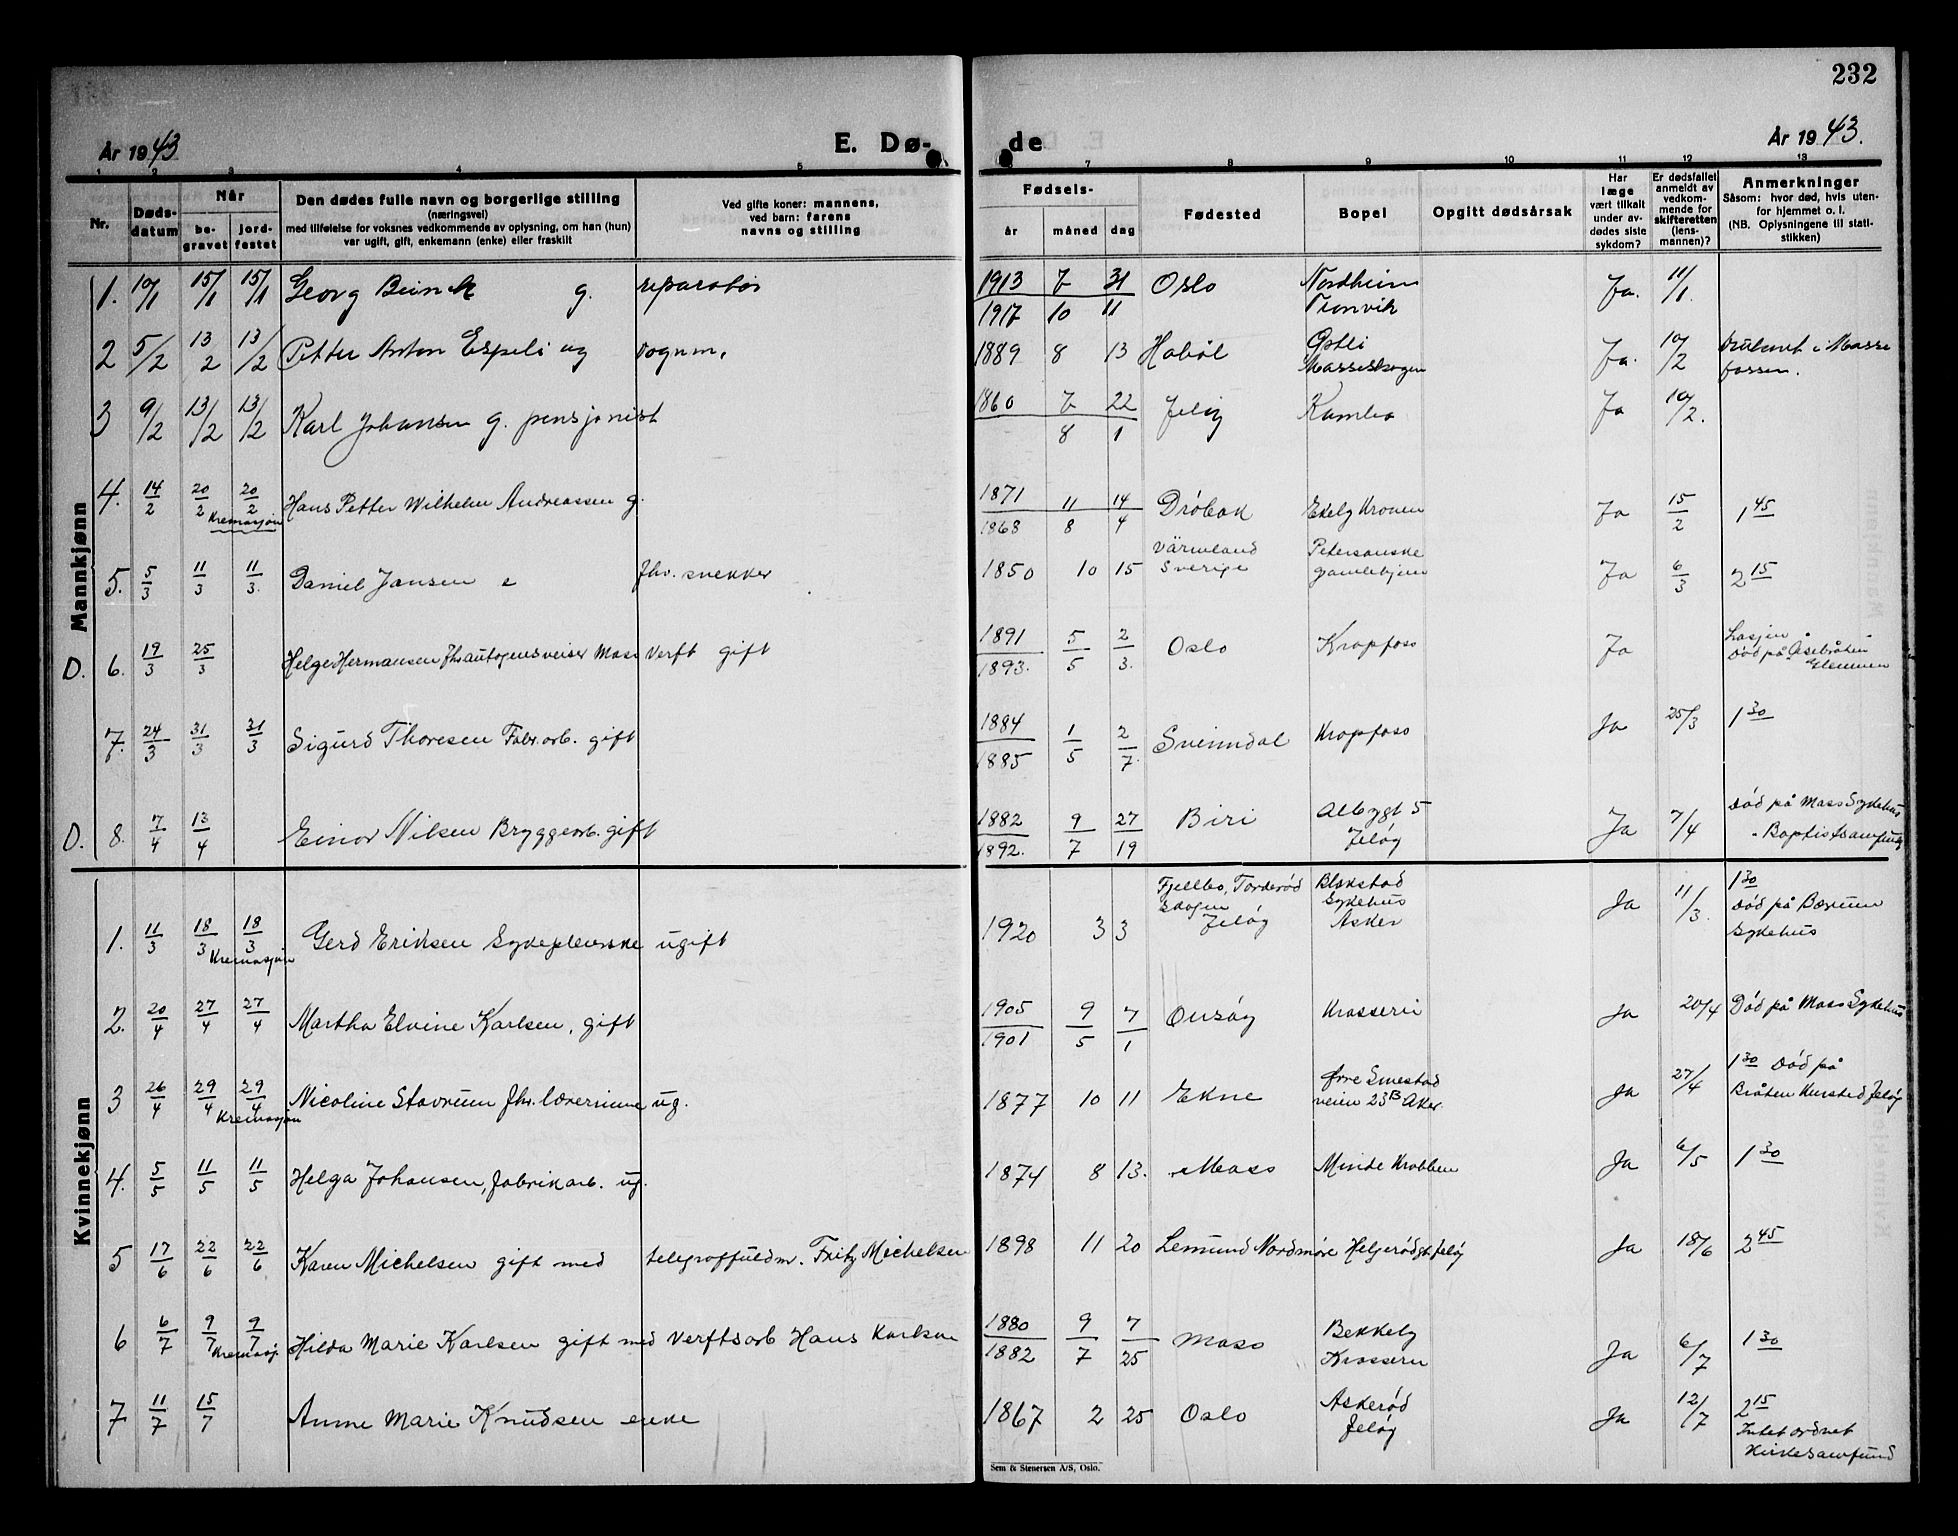 232
År 1943
E. Dø-
de
År 1943.
1 2 3 4 5 7 8 9 10 11 12 13
Nr.
Døds-
datum
Når
be-
gravet
jord-
festet
Den dødes fulle navn og borgerlige stilling
(næringsvei)
med tilføielse for voksnes vedkommende av oplysning, om han (hun)
var ugift, gift, enkemann (enke) eller fraskilt
Ved gifte koner: mannens,
ved barn: farens
navns og stilling
Fødsels-
år måned dag
Fødested
Bopel
Opgitt dødsårsak
Har
læge
vært tilkalt
under av-
dødes siste
sykdom?
Er dødsfallet
anmeldt av
vedkom-
mende for
skifteretten
(lens-
mannen)?
Anmerkninger
Såsom: hvor død, hvis uten-
for hjemmet o. l.
(NB. Oplysningene til stati-
stikken)
Mankjønn
1. 10/1 15/1 15/1 Georg g. reparatør 1913 7 31 Oslo Nordheim Ja. 11/1.
1917 10 11 Tronvik
2 5/2 13/2 13/2 Petter Anton Espeli ug vognm. 1889 8 13 Hobøl Østli Ja. 10/2 i Mosse
fossen.
3 9/2 13/2 13/2 Karl Johansen g. pensjonist 1860 7 22 Jeløy Kambo Ja 10/2.
8 1
4. 14/2 20/2 20/2 Hans Petter Wilhelm Andreassen g. 1871 11 14 Drøbak Ekely Kronen Ja 15/2 1 45
Kremasjon 1868 8 4
5. 5/3 11/3 11/3. Daniel Jansen e fhv. snekker 1850 10 15 Värmland Ja 6/3 2 15
Sverige gamlehjem
D. 6. 19/3 25/3 Helge Hermansen fhv autogensveiser Moss Verft gift 1891 5 2 Oslo Krapfoss Ja
1893. 5 3. Død på
7. 24/3 31/3 31/3 Sigurd Thoresen Fabr.arb. gift 1884 1 2 Svinndal Krapfoss Ja 25/3 1 30
1885 5 7.
D. 8. 7/4 13/4 Einar Nilsen Bryggearb. gift 1882 9 27 Biri Albygt 5 Ja 7/4 Død på Moss Sykehus
1892. 7 19 Jeløy
Kvinnekjønn
1. 11/3 18/3 18/3 Gerd Eriksen Sykepleierske ugift 1920 3 3 Fjellbo, Torderød Blakstad Ja 11/3. 1 30
Kremasjon skogen Sykehus Død på Bærum
Jeløy Asker Sykehus
2. 20/4 27/4 27/4 Martha Elvine Karlsen, gift 1905 9 7 Onsøy Krosseru Ja 20/4 Død på Moss Sykehus
1901 5 1
3 26/4 29/4 29/4 Nicoline Stavrum fhv. lærerinne ug. 1877 10 11 Ekne Øvre Smestad Ja 27/4 1 30 Død på
Kremasjon veien 23B Aker. Bråten Kursted Jeløy
4. 5/5 11/5 11/5 Helga Johansen, fabrikarb. ug. 1874 8 13. Moss Minde Krabben Ja 6/5 1 30
5 17/6 22/6 22/6 Karen Michelsen gift med telegraffuldm. Fritz Michelsen 1898 11 20 Nordmøre Helgerødgt Jeløy Ja 18/6 2 45
6 6/7 9/7 9/7 Hilda Marie Karlsen gift med Verftsarb Hans Karlsen 1880 9 7 Moss Bekkely Ja 6/7 1 30
1882 7 25 Krosseru
7 11/7 15/7 Anne Marie Knudsen enke 1867 2 25 Oslo Askerød Ja 12/7 2 15
Jeløy Intet ordnet
Kirkesamfund
Sem & Stenersen A/S, Oslo.